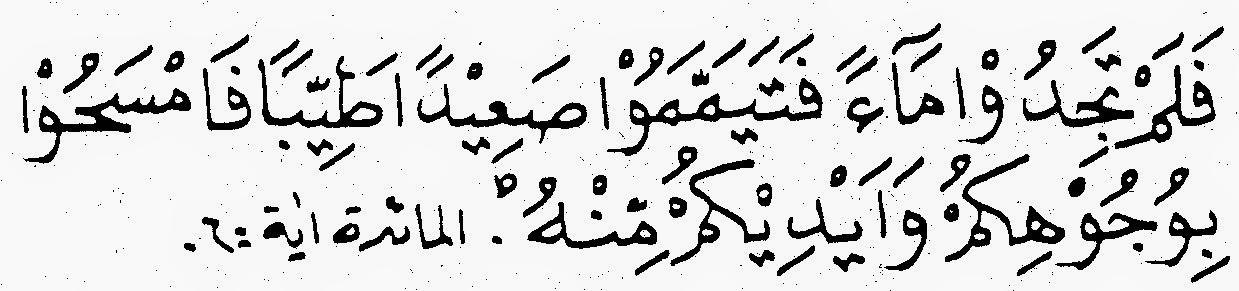 فَلَمْ تَجِدُوْا مَآءً فَتَيَمَّمُوْا صَعِيْدًا طَيِّبًا فَامْسَحُوْا
بِوُجُوْهِكُمْ وَاَيْدِيْكُمْ مِّنْهُ ۚ. المائدة اٰية :٦.